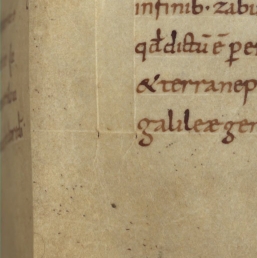 infinib· zabu
qd̄ dictū ē p es
&terranep
galileæ gen